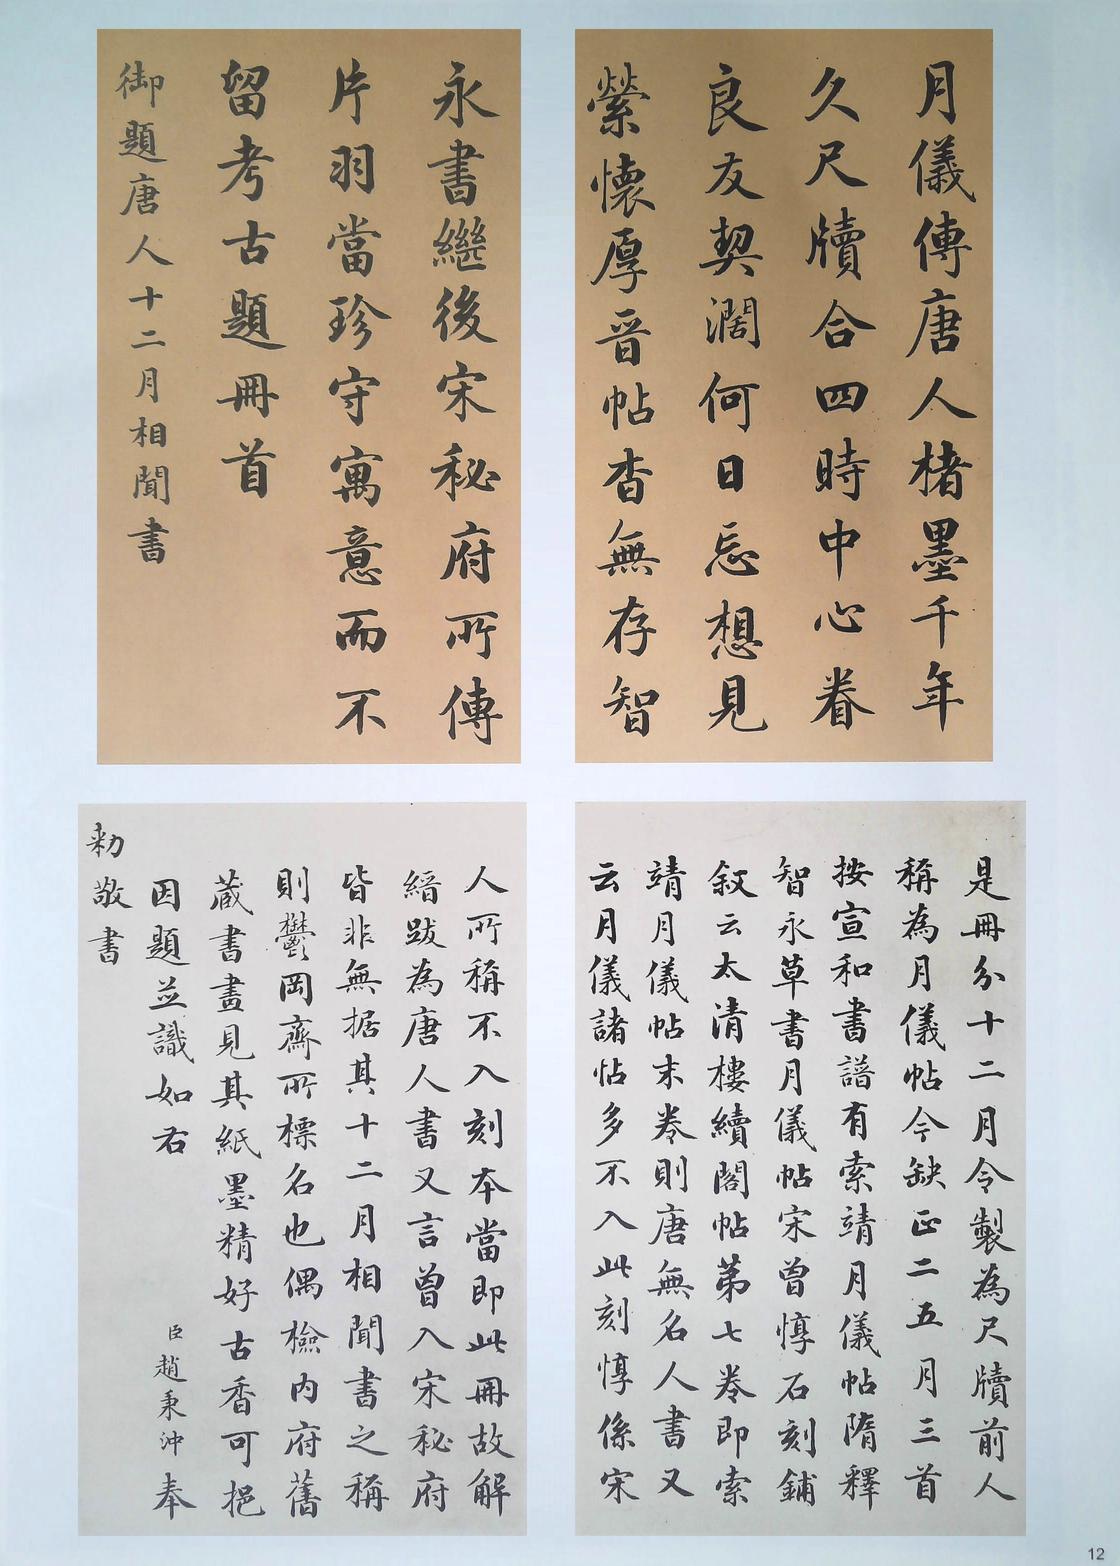 月儀傳唐人楮墨千年
久尺牘合四時中心眷
良友契濶何日忘想見
縈懷厚晉帖杳無存智
永書繼後宋秘府所傳
片羽當珍守寓意而不
留考古題冊首
御題唐人十二月相聞書
是冊分十二月令製為尺牘前人
稱為月儀帖今缺正二五月三首
按宣和書譜有索靖月儀帖隋釋
智永草書月儀帖宋曾惇石刻鋪
敘云太清樓續閣帖第七卷即索
靖月儀帖末卷則唐無名人書又
云月儀諸帖多不入此刻惇係宋
人所稱不入刻本當即此冊故解
縉跋為唐人書又言曾入宋秘府
皆非無据其十二月相聞書之稱
則鬱岡齋所標名也偶檢內府舊
藏書畫見其紙墨精好古香可挹
因題並識如右 臣趙秉沖奉
勅敬書
12